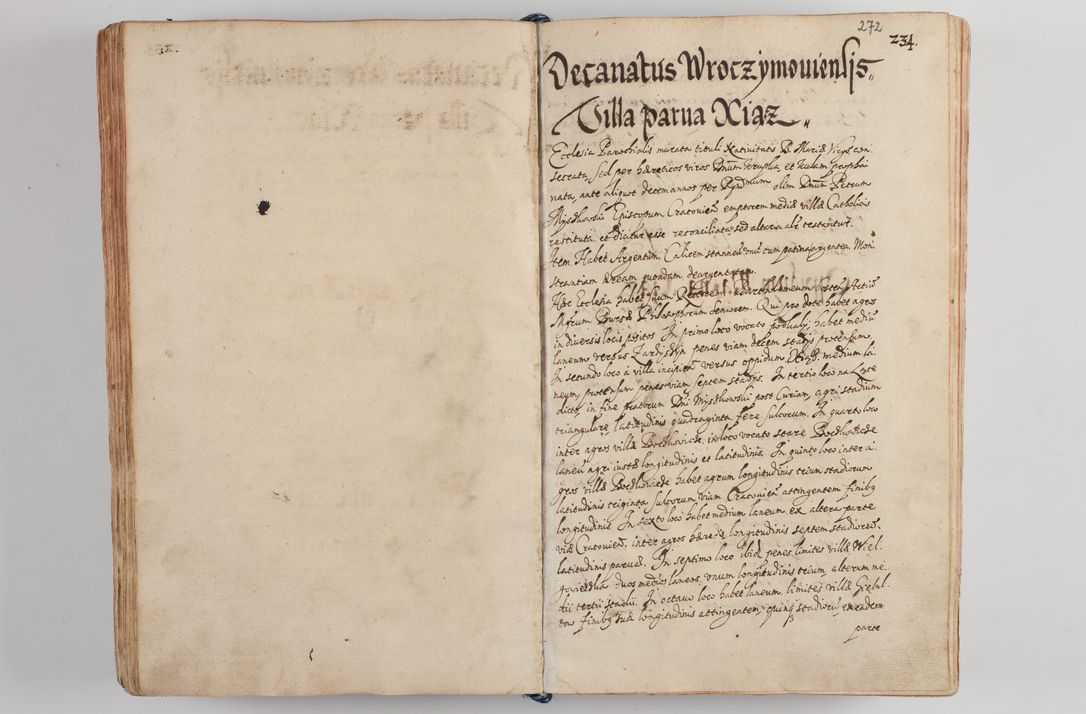 272
234.
Decanatus Wroczymouiensis
Villa parua Xiaz
Ecclesia Parochialis murata tituli Natiuitatis B. Mariæ Virg: con
secrata, sed per hæreticos viros Dnum Krupka, et Kulam propha
nata, ante aliquot decem annos per Rndmum olim Dnum Petrum
Myszkowski Episcopum Cracouien emptorem mediæ villæ Catholicis
restituta, et dicitur esse reconciliata, sed altaria alr testantur.
Item Habet Argentum. Calicem stanneū vnū cum patina argentea. Mon
strantiam æream quondam deargentatam.
Hæc Ecclesia habet suum Rectorem Bartholomeum
Mgrum Bursæ Philosophorum Seniorem. Qui pro dote habet agros
in diuersis locis positos. In primo loco vocato habet mediū
laneum versus penes viam decem stadijs protensum.
In secundo loco à villa incipien versus oppidum Xiaz, medium la,
neum, protensum penes viam septem stadijs. In tertio loco na
dicto, in fine pratorum Dni Myszkowski post Curiam, agri stadium
triangulare, latitudinis quadraginta fere sulcorum. In quarto loco
inter agros villæ Boczkowicze, in loco vocato stare Boczkowicze
laneū agri iustæ longitudinis et latitudinis. In quinto loco inter a,
gros villæ Boczkowicze habet agrum longitudinis trium stadiorum
latitudinis triginta sulcorum, viam Cracouien attingentem finibq
longitudinis. In sexto loco habet medium laneum ex altera parte
viæ Cracouien, inter agros hæredis, longitudinis septem stadiorū,
latitudinis paruæ. In septimo loco ibid penes limites villæ Wiel,
duos medios laneos, vnum longitudinis trium, alterum me,
dii tertii stadii. In octauo loco habet laneum, limites villæ Giebul,
tow finibq suæ longitudinis attingentem, quinq stadiorū, ex eadem
parte